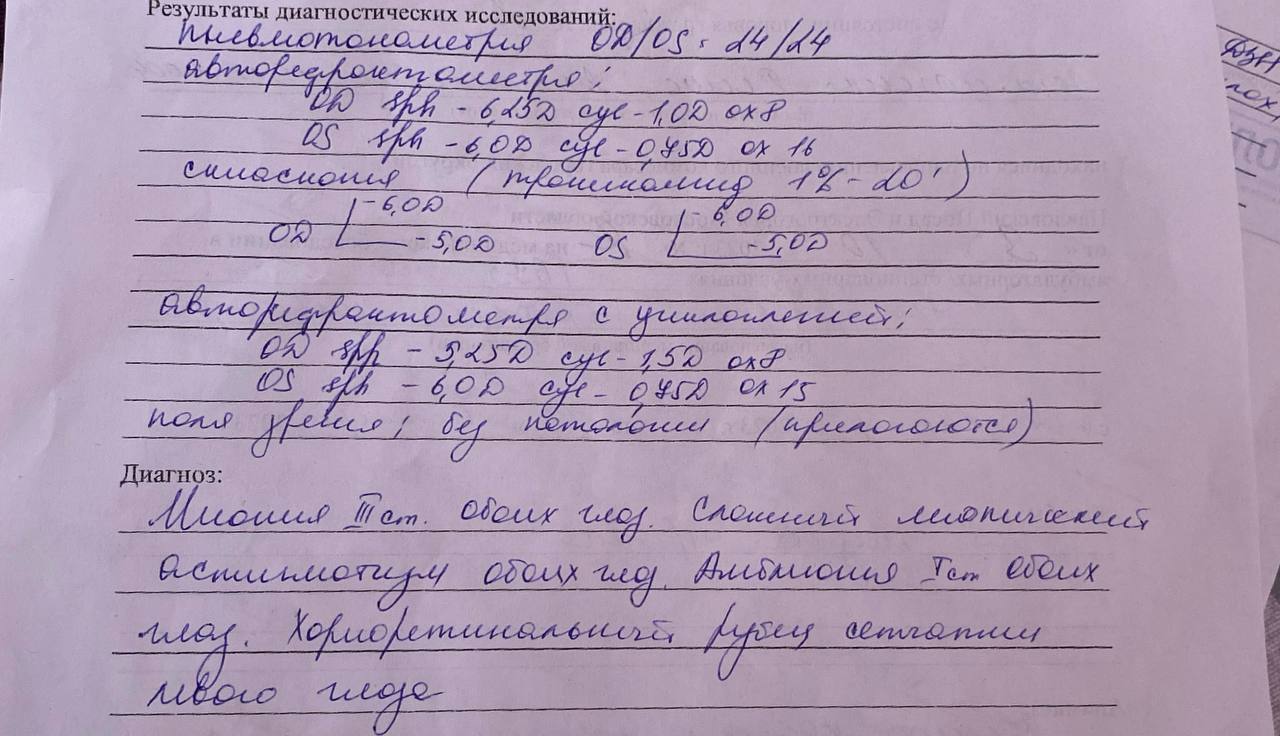 Результаты диагностических исследований:
Пневмотонометрия OD/OS = 24/24
авторефрактометрия:
OD sph - 6,25D cyl - 1,0D ax 8
OS sph - 6,0D cyl - 0,75D ax 16
скиаскопия (тропикамид 1% - 20')
-6,0D -6,0D
OD -5,0D OS -5,0D
авторефрактометрия с циклоплегией:
OD sph - 5,25D cyl - 1,5D ax 8
OS sph - 6,0D cyl - 0,75D ax 15
поля зрения: без патологии (прилагаются)
Диагноз:
Миопия III ст. обоих глаз. Сложный миопический
астигматизм обоих глаз. Амблиопия I ст обоих
глаз. Хориоретинальный рубец сетчатки
левого глаза